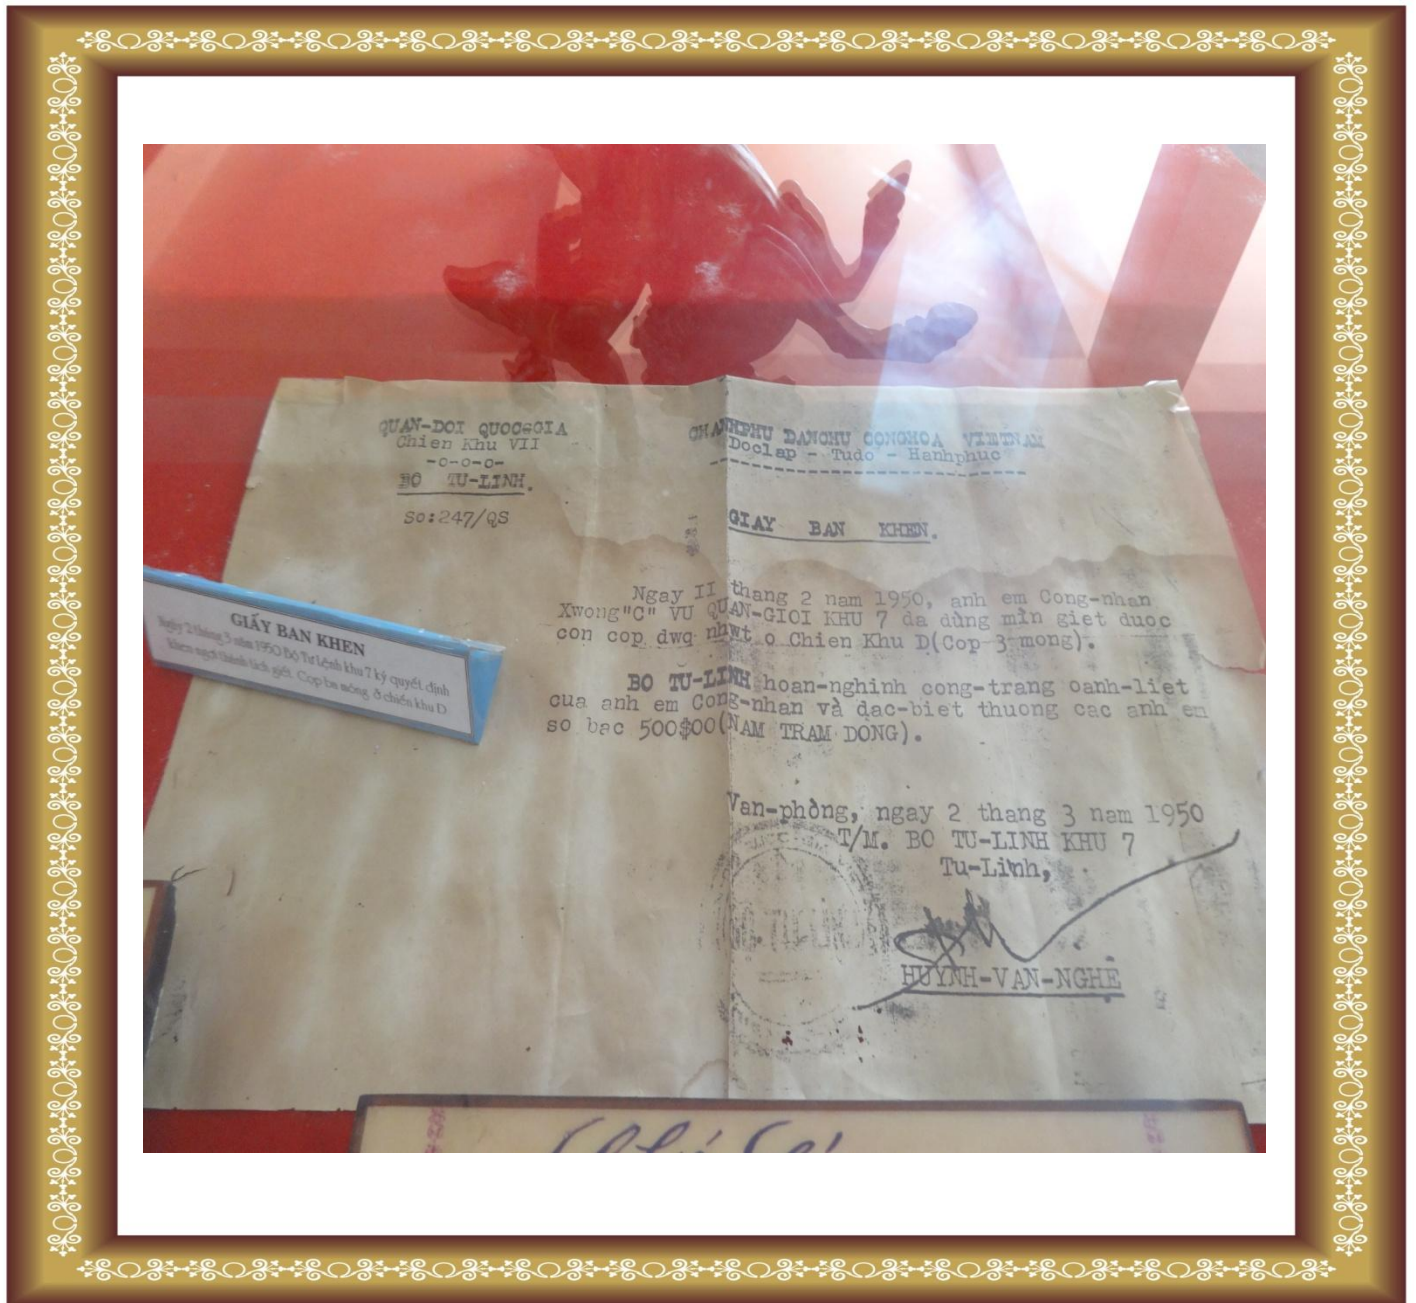 QUAN-DOI QUOCGGIA
Chien Khu VII
-o-o-o-
BO TU-LINH.
So:247/QS
CHANHPHU DANCHU CONGHOA VIETNAM
Doclap - Tudo - Hanhphuc
GIAY BAN KHEN.
Ngay II thang 2 nam 1950, anh em Cong-nhan
Xwong"C" VU QUAN-GIOI KHU 7 da dùng mìn giet duoc
con cop dwq nhwt o Chien Khu D(Cop 3 mong).
BO TU-LINH hoan-nghinh cong-trang oanh-liet
cua anh em Cong-nhan và dac-biet thuong cac anh em
so bac 500$00(NAM TRAM DONG).
Van-phòng, ngay 2 thang 3 nam 1950
T/M. BO TU-LINH KHU 7
Tu-Linh,
HUYNH-VAN-NGHỆ
GIẤY BAN KHEN
Ngày 2 tháng 3 năm 1950 Bộ Tư Lệnh khu 7 ký quyết định
khen ngợi thành tích giết Cọp ba móng ở chiến khu D